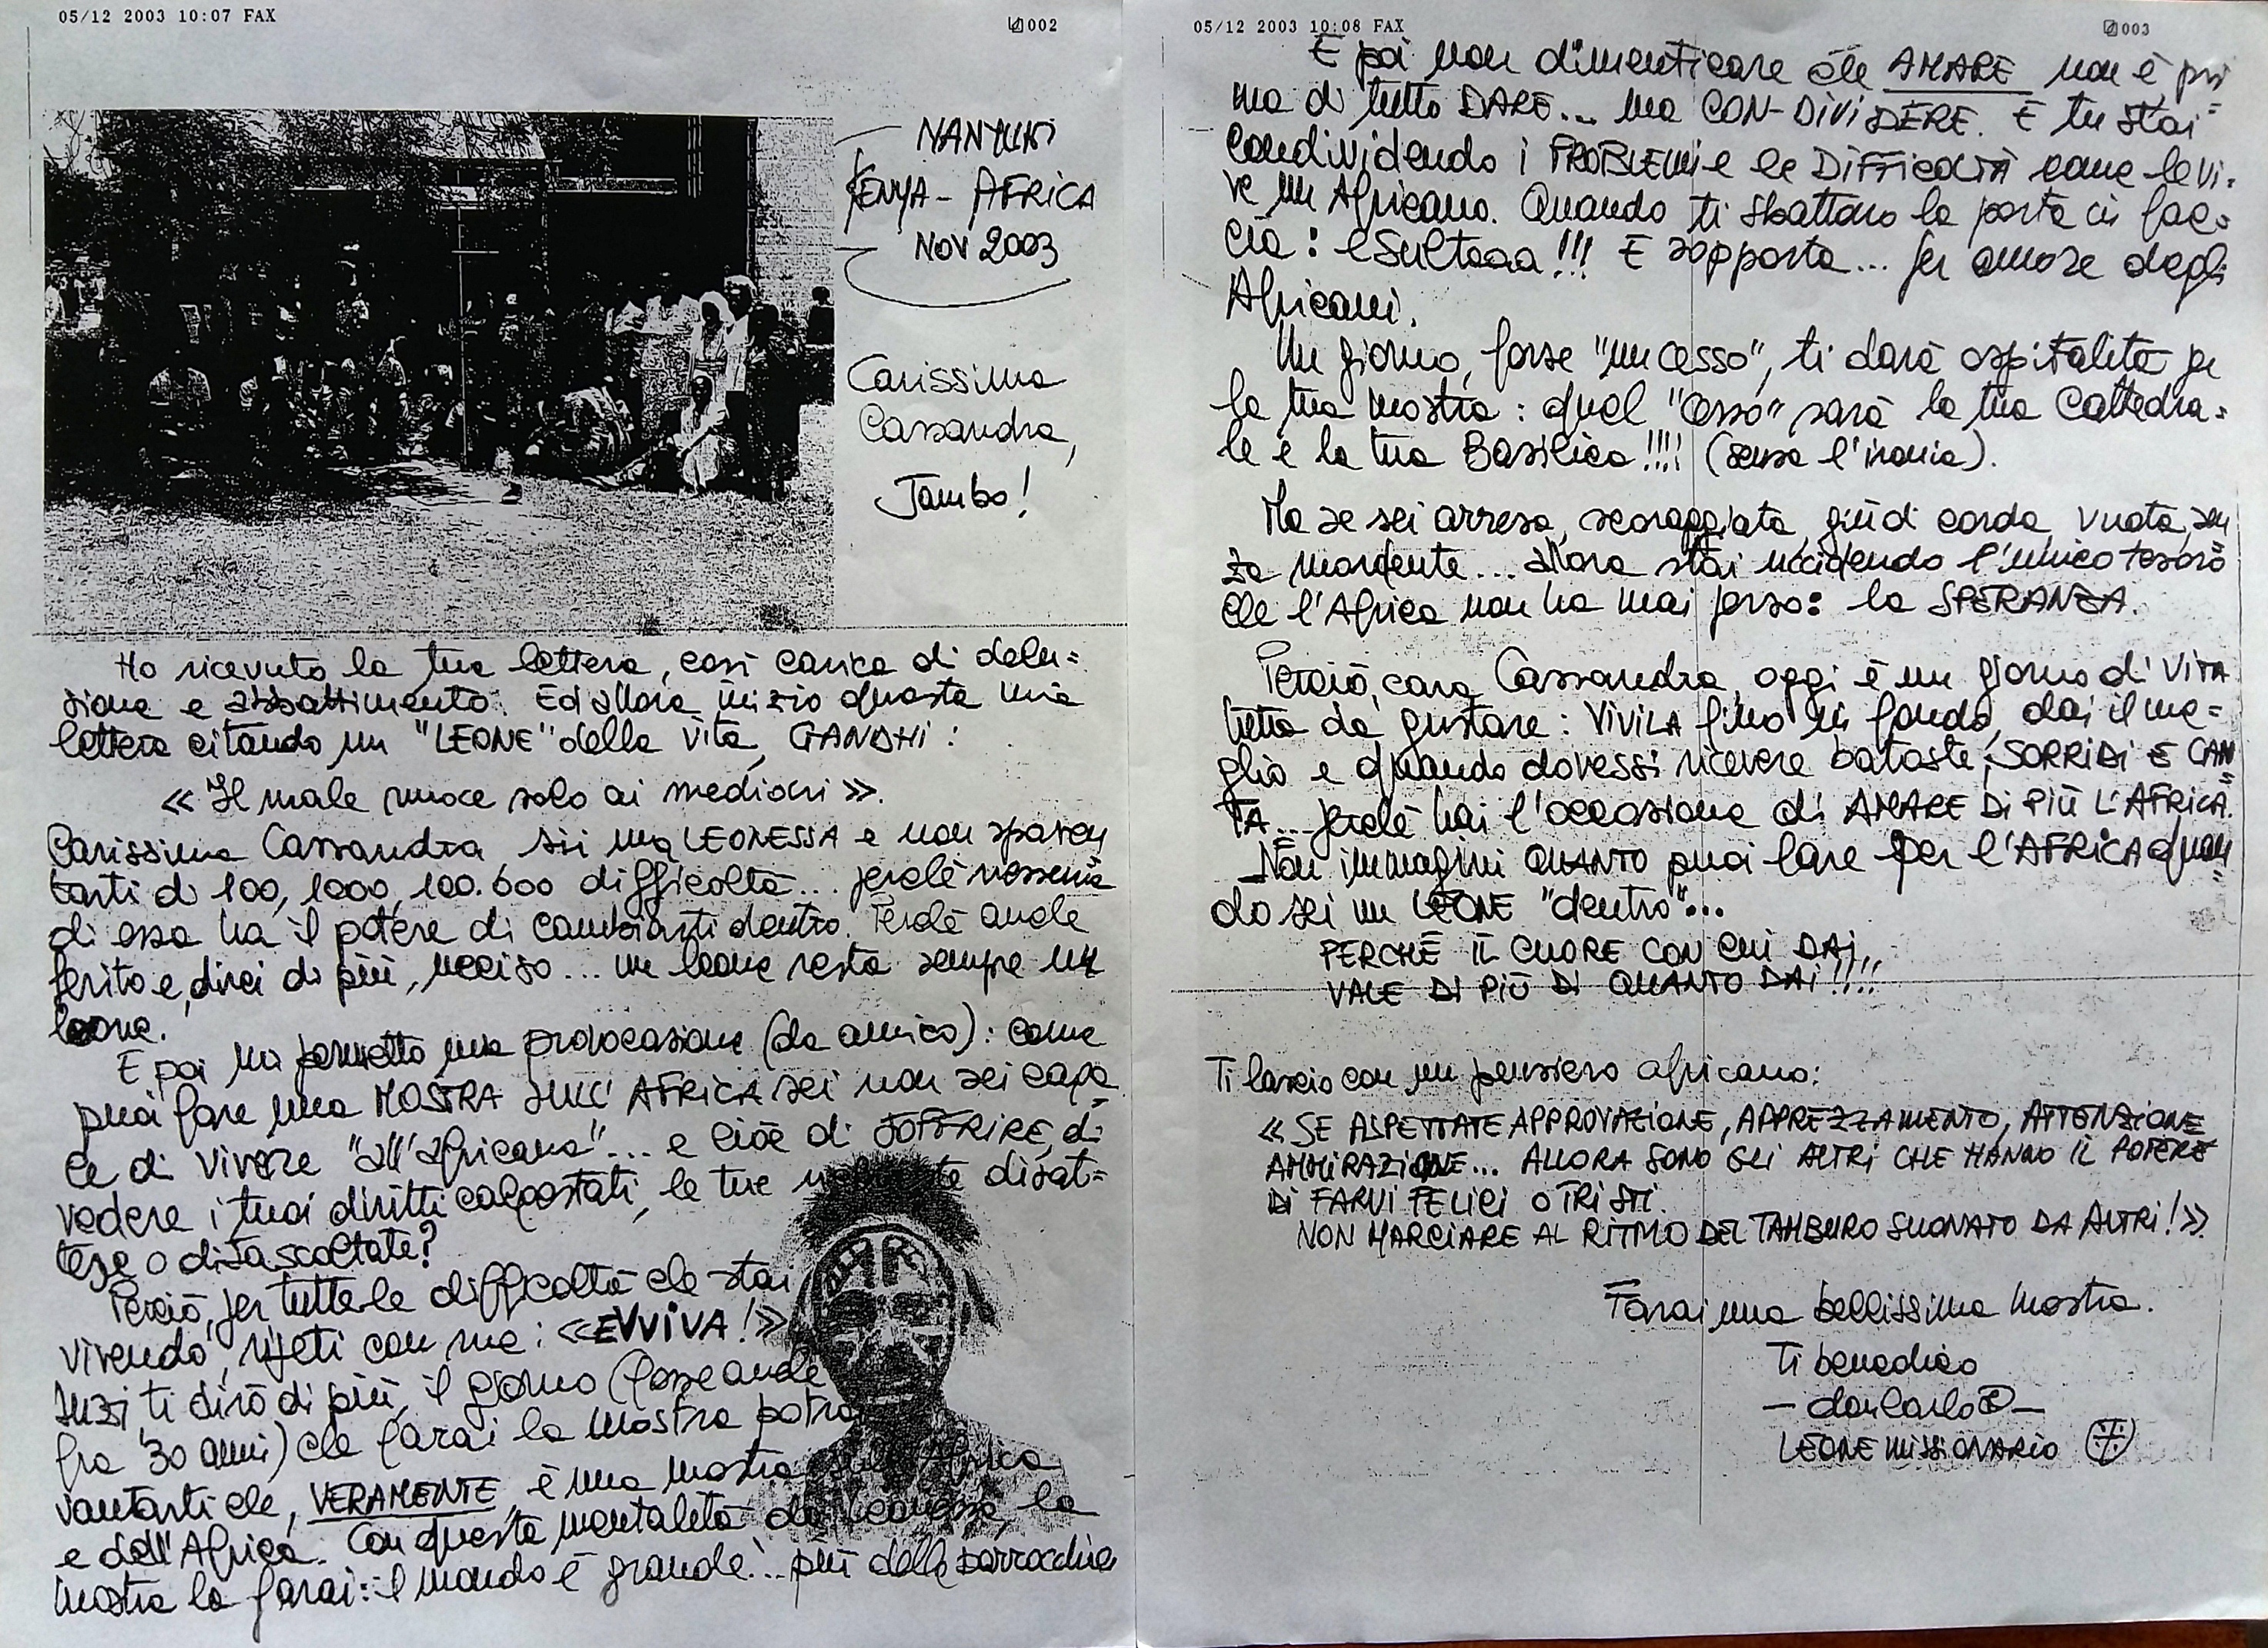 05/12 2003 10:07 FAX
002
NANYUKI
KENYA - AFRICA
NOV 2003
Carissima
Cassandra,
Jambo!
Ho ricevuto la tua lettera, così carica di delu=
sione e abbattimento. Ed allora inizio questa mia
lettera citando un "LEONE" della vita, GANDHI:
« Il male nuoce solo ai mediocri ».
Carissima Cassandra, sii una LEONESSA e non spaven
tarti di 100, 1000, 100.000 difficoltà... perchè nessuna
di essa ha il potere di cambiarti dentro. Perchè anche
ferito e, direi di più, ucciso... un leone resta sempre un
leone.
E poi mi permetto una provocazione (da amico): come
puoi fare una MOSTRA SULL'AFRICA sei non sei capa=
ce di vivere "all'africana"... e cioè di SOFFRIRE, di
vedere i tuoi diritti calpestati, le tue disat=
tese o disascoltate?
Perciò, per tutte le difficoltà che stai
vivendo, ripeti con me: «EVVIVA!»
Anzi, ti dirò di più, il giorno (fosse anche
fra 30 anni) che farai la mostra potrai
vantarti che, VERAMENTE, è una mostra sull'Africa
e dell'Africa. Con questa mentalità da leonessa, la
mostra la farai: il mondo è grande!.. più delle parrocchie
05/12 2003 10:08 FAX
003
E poi non dimenticare che AMARE non è pri=
ma di tutto DARE... ma CON-DIVIDERE. E tu stai
condividendo i PROBLEMI e le DIFFICOLTÀ come le vi=
ve un Africano. Quando ti sbattono la porta in fac=
cia: esultaaa!!! E sopporta... per amore degli
Africani.
Un giorno, forse "un cesso", ti darà ospitalità per
la tua mostra: quel "cesso" sarà la tua Cattedra=
le e la tua Basilica!!!! (senza l'ironia).
Ma se sei arresa, scoraggiata, giù di corda, vuota, sen
za mordente... allora stai uccidendo l'unico tesoro
che l'Africa non ha mai perso: la SPERANZA.
Perciò, cara Cassandra, oggi è un giorno di VITA
tutta da gustare: VIVILA fino in fondo, dai il me=
glio e quando dovessi ricevere batoste, SORRIDI E CAN
TA... perchè hai l'occasione di AMARE DI PIÙ L'AFRICA.
Non immagini QUANTO puoi fare per l'AFRICA quan
do sei un LEONE "dentro"...
PERCHÈ IL CUORE CON CUI DAI,,
VALE DI PIÙ DI QUANTO DAI!!!!
Ti lascio con un pensiero africano:
« SE ASPETTATE APPROVAZIONE, APPREZZAMENTO, ATTENZIONE
AMMIRAZIONE... ALLORA SONO GLI ALTRI CHE HANNO IL POTERE
DI FARVI FELICI O TRISTI.
NON MARCIARE AL RITMO DEL TAMBURO SUONATO DA ALTRI!».
Farai una bellissima mostra.
Ti benedico
- don Carlo -
LEONE MISSIONARIO